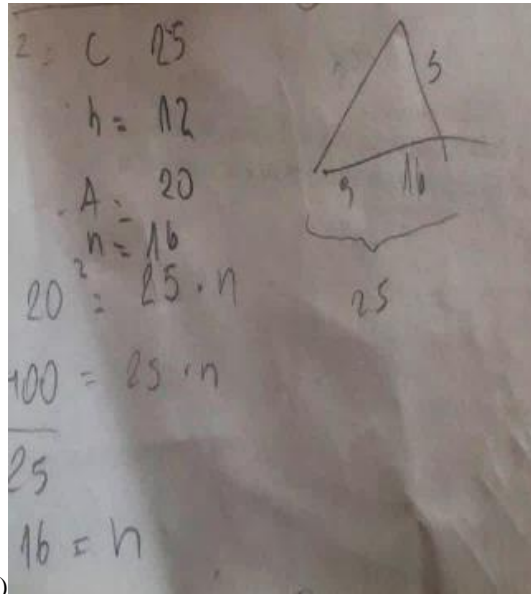 2: C 25
h = 12
A = 20
n = 16
20² = 25 · n
400 = 25 · n
25
16 = n
5
9 16
25